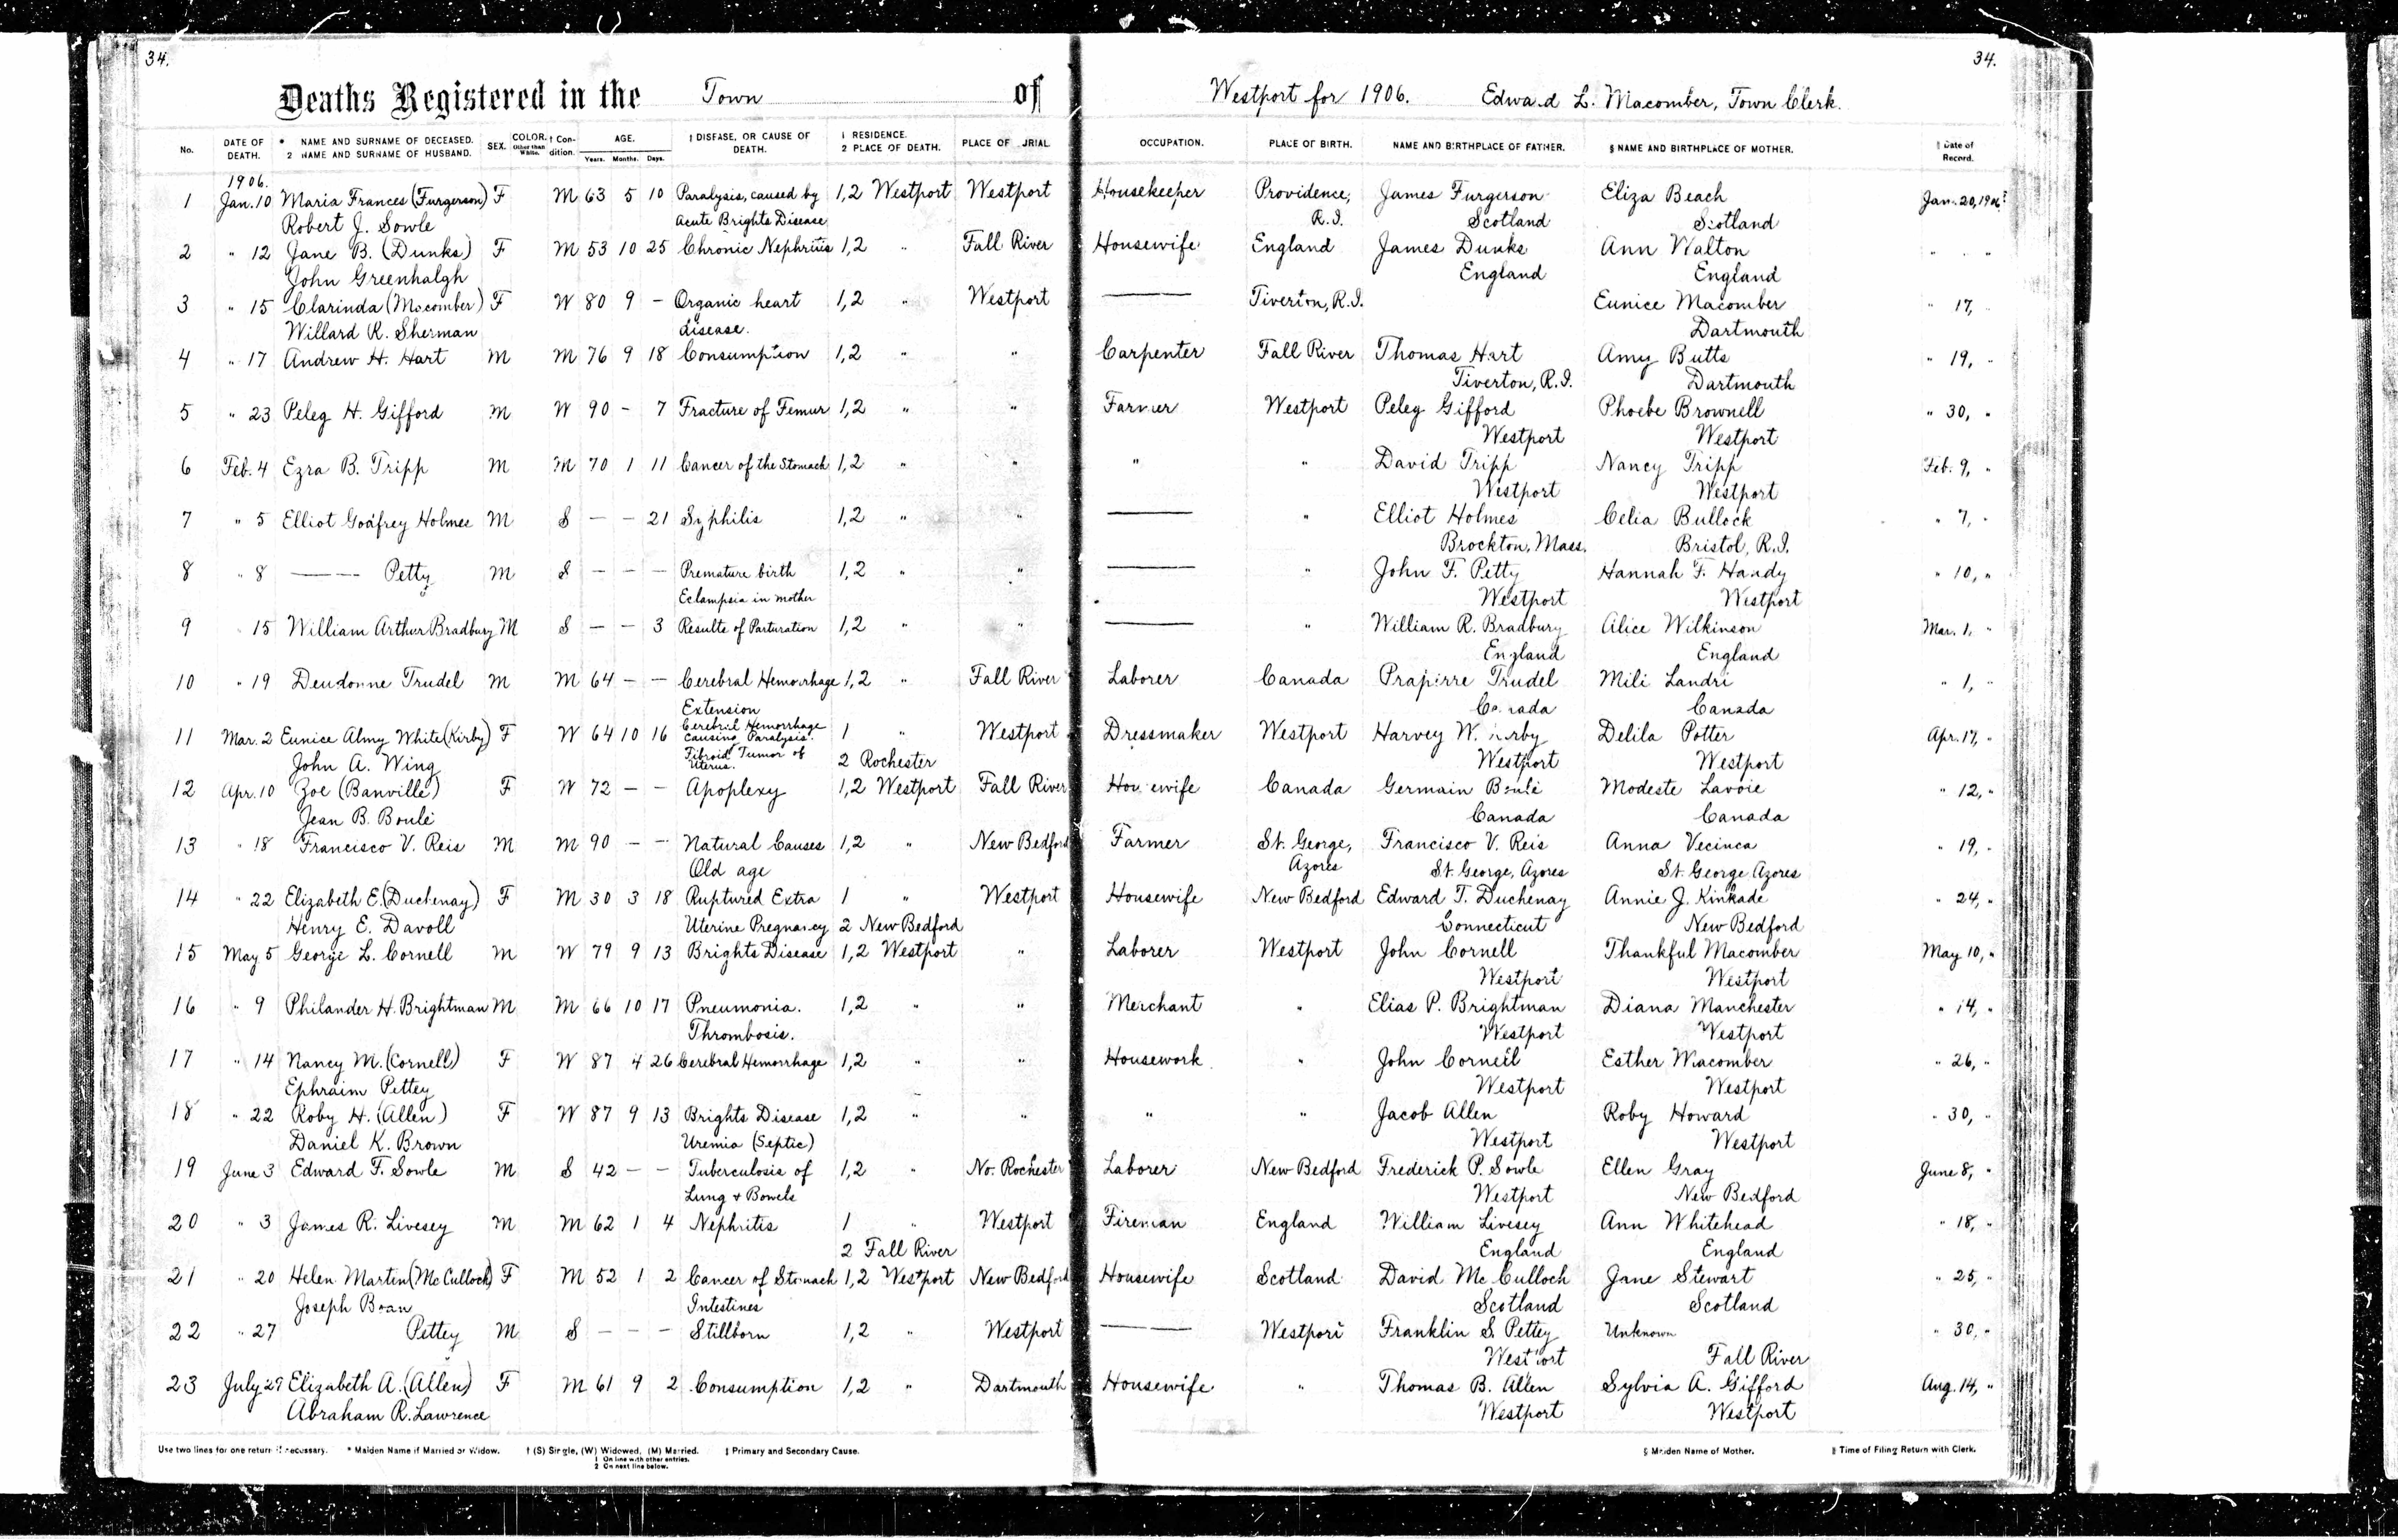 34. 34.
Deaths Registered in the Town of Westport for 1906. Edward L. Macomber, Town Clerk.
No. DATE OF DEATH. * 1 NAME AND SURNAME OF DECEASED. 2 NAME AND SURNAME OF HUSBAND. SEX. COLOR. Other than White. † Condition. AGE. Years. Months. Days. ‡ DISEASE, OR CAUSE OF DEATH. 1 RESIDENCE. 2 PLACE OF DEATH. PLACE OF BURIAL OCCUPATION. PLACE OF BIRTH. NAME AND BIRTHPLACE OF FATHER. § NAME AND BIRTHPLACE OF MOTHER. ‖ Date of Record.
1906.
1 Jan. 10 Maria Frances (Furgerson) F M 63 5 10 Paralysis, caused by 1,2 Westport Westport Housekeeper Providence, James Furgerson Eliza Beach Jan. 20, 1906.
Robert J. Sowle Acute Brights Disease R.I. Scotland Scotland
2 " 12 Jane B. (Dunks) F M 53 10 25 Chronic Nephritis 1,2 " Fall River Housewife England James Dunks Ann Walton " " "
John Greenhalgh England England
3 " 15 Clarinda (Macomber) F W 80 9 – Organic heart 1,2 " Westport —— Tiverton, R.I. Eunice Macomber " 17, "
Willard R. Sherman disease. Dartmouth
4 " 17 Andrew H. Hart M M 76 9 18 Consumption 1,2 " " Carpenter Fall River Thomas Hart Amy Butts " 19, "
Tiverton, R.I. Dartmouth
5 " 23 Peleg H. Gifford M W 90 – 7 Fracture of Femur 1,2 " " Farmer Westport Peleg Gifford Phoebe Brownell " 30, "
Westport Westport
6 Feb. 4 Ezra B. Tripp M M 70 1 11 Cancer of the Stomach 1,2 " " " " David Tripp Nancy Tripp Feb. 9, "
Westport Westport
7 " 5 Elliot Godfrey Holmes M S – – 21 Syphilis 1,2 " " —— " Elliot Holmes Celia Bullock " 7, "
Brockton, Mass. Bristol, R.I.
8 " 8 —— Petty M S – – – Premature birth 1,2 " " —— " John F. Petty Hannah F. Handy " 10, "
Eclampsia in mother Westport Westport
9 " 15 William Arthur Bradbury M S – – 3 Results of Parturation 1,2 " " —— " William R. Bradbury Alice Wilkinson Mar. 1, "
England England
10 " 19 Deudonne Trudel M M 64 – – Cerebral Hemorrhage 1,2 " Fall River Laborer Canada Prapirre Trudel Mili Landri " 1, "
Extension Canada Canada
11 Mar. 2 Eunice Almy White (Kirby) F W 64 10 16 Cerebral Hemorrhage causing Paralysis. 1 " Westport Dressmaker Westport Harvey W. Kirby Delila Potter Apr. 17, "
John A. Wing Fibroid Tumor of Uterus. 2 Rochester Westport Westport
12 Apr. 10 Zoe (Banville) F W 72 – – Apoplexy 1,2 Westport Fall River Housewife Canada Germain Banville Modeste Lavoie " 12, "
Jean B. Boulé Canada Canada
13 " 18 Francisco V. Reis M M 90 – – Natural Causes 1,2 " New Bedford Farmer St. George, Francisco V. Reis Anna Vecinca " 19, "
Old age Azores St. George, Azores St. George Azores
14 " 22 Elizabeth E. (Duchenay) F M 30 3 18 Ruptured Extra 1 " Westport Housewife New Bedford Edward T. Duchenay Annie J. Kinkade " 24, "
Henry E. Davoll Uterine Pregnancy 2 New Bedford Connecticut New Bedford
15 May 5 George L. Cornell M W 79 9 13 Brights Disease 1,2 Westport " Laborer Westport John Cornell Thankful Macomber May 10, "
Westport Westport
16 " 9 Philander H. Brightman M M 66 10 17 Pneumonia. 1,2 " " Merchant " Elias P. Brightman Diana Manchester " 14, "
Thrombosis. Westport Westport
17 " 14 Nancy M. (Cornell) F W 87 4 26 Cerebral Hemorrhage 1,2 " " Housework " John Cornell Esther Macomber " 26, "
Ephraim Pettey Westport Westport
18 " 22 Roby H. (Allen) F W 87 9 13 Brights Disease 1,2 " " " " Jacob Allen Roby Howard " 30, "
Daniel K. Brown Uremia (Septic) Westport Westport
19 June 3 Edward F. Sowle M S 42 – – Tuberculosis of 1,2 " No. Rochester Laborer New Bedford Frederick P. Sowle Ellen Gray June 8, "
Lung + Bowels Westport New Bedford
20 " 3 James R. Livesey M M 62 1 4 Nephritis 1 " Westport Fireman England William Livesey Ann Whitehead " 18, "
2 Fall River England England
21 " 20 Helen Martin (McCulloch) F M 52 1 2 Cancer of Stomach 1,2 Westport New Bedford Housewife Scotland David McCulloch Jane Stewart " 25, "
Joseph Intestines Scotland Scotland
22 " 27 Pettey M S – – – Stillborn 1,2 " Westport —— Westport Franklin S. Pettey Unknown " 30, "
Westport Fall River
23 July 27 Elizabeth A. (Allen) F M 61 9 2 Consumption 1,2 " Dartmouth Housewife " Thomas B. Allen Sylvia A. Gifford Aug. 14, "
Abraham R. Lawrence Westport Westport
Use two lines for one return if necessary. * Maiden Name if Married or Widow. † (S) Single, (W) Widowed, (M) Married. ‡ Primary and Secondary Cause. § Maiden Name of Mother. ‖ Time of Filing Return with Clerk.
1 On line with other entries.
2 On next line below.